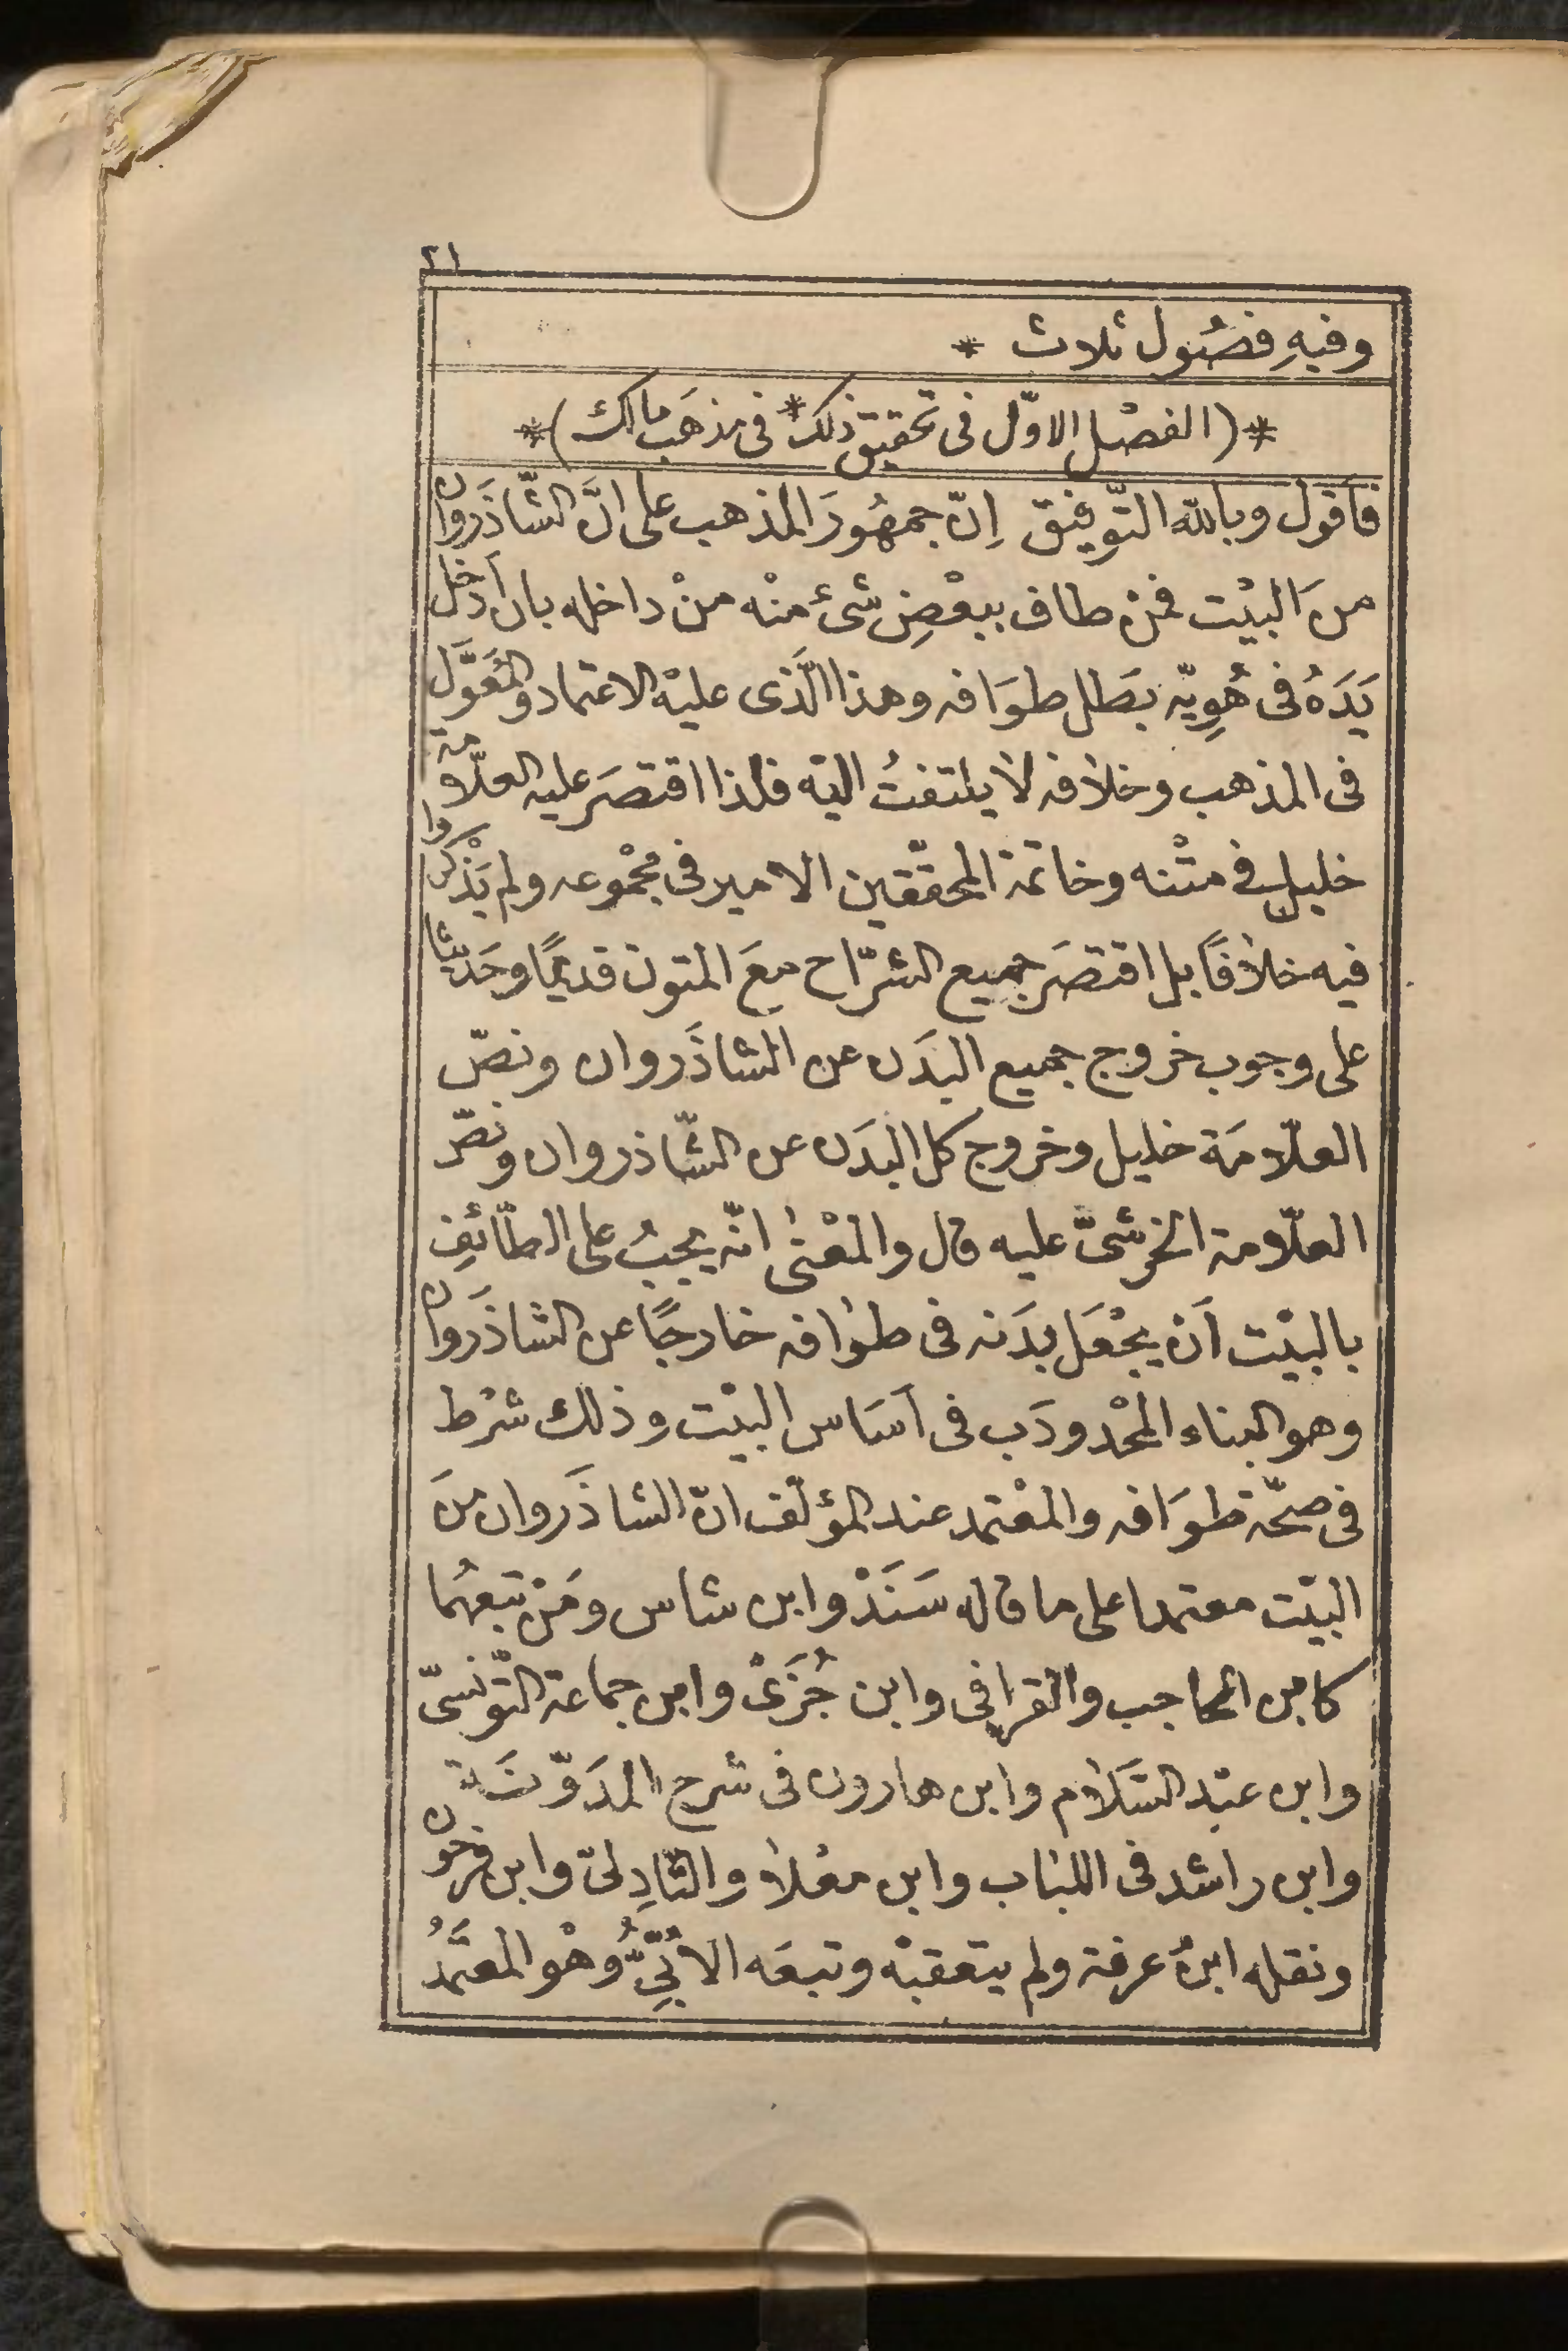 ٢١
وفيهِ فصُول ثلاث *
*( الفصْل الاوّل فى تحقيق ذلك * فى مذهَب مالك )*
فاَقول وبالله التّوفيق اِنّ جمهُورَ المذهب على انَّ الشّاذَروان
منَ البيْت فمنْ طاف ببعْضِ شئ منْه منْ داخله بان اَدْخل
يَدَهُ فى هُوِيّه بطَل طوَافه وهذا الَّذى عليْه الاعتماد والمُعَوَّل
فى المذهب وخلافه لا يلتفتُ اليْه فلذا اقتصَر عليه العلّامة
خليل فى متْنه وخاتمة المحقّقين الامير فى مجْموعه ولم يَذْكروا
فيه خلافًا بل اقتصَر جميع الشرّاح معَ المتون قديمًا وحَديثًا
على وجوب خروج جميع البدَن عن الشاذَروان ونصّ
العلّامَة خليل وخروج كل البدَن عن الشّاذروان ونصّ
العلّامة الخرشىّ عليه قال والمعْنى انّه يجبُ على الطّائفِ
بالبيْت اَن يجْعَل بدَنه فى طوافه خارجًا عن الشاذَروان
وهو البناء المحْدودَب فى اَسَاس البيْت وذلك شرْط
فى صحّة طوَافه والمعْتمد عند المؤلّف انّ الشاذَروان منَ
البيْت معتمدا على ما قاله سَنَدْ وابن شاس ومَنْ تبعهُما
كابن الحاجب والقرافى وابن جُزَىْ وابن جماعة التّونسىّ
وابن عبْد السَّلام وابن هارون فى شرح المدَوّنَة
وابن راشد فى اللباب وابن معْلا والتّادِلىّ وابن فرحون
ونقله ابنُ عرفة ولم يتعقبْه وتبعَه الاُبِّىُّ وهْو المعتَمدُ